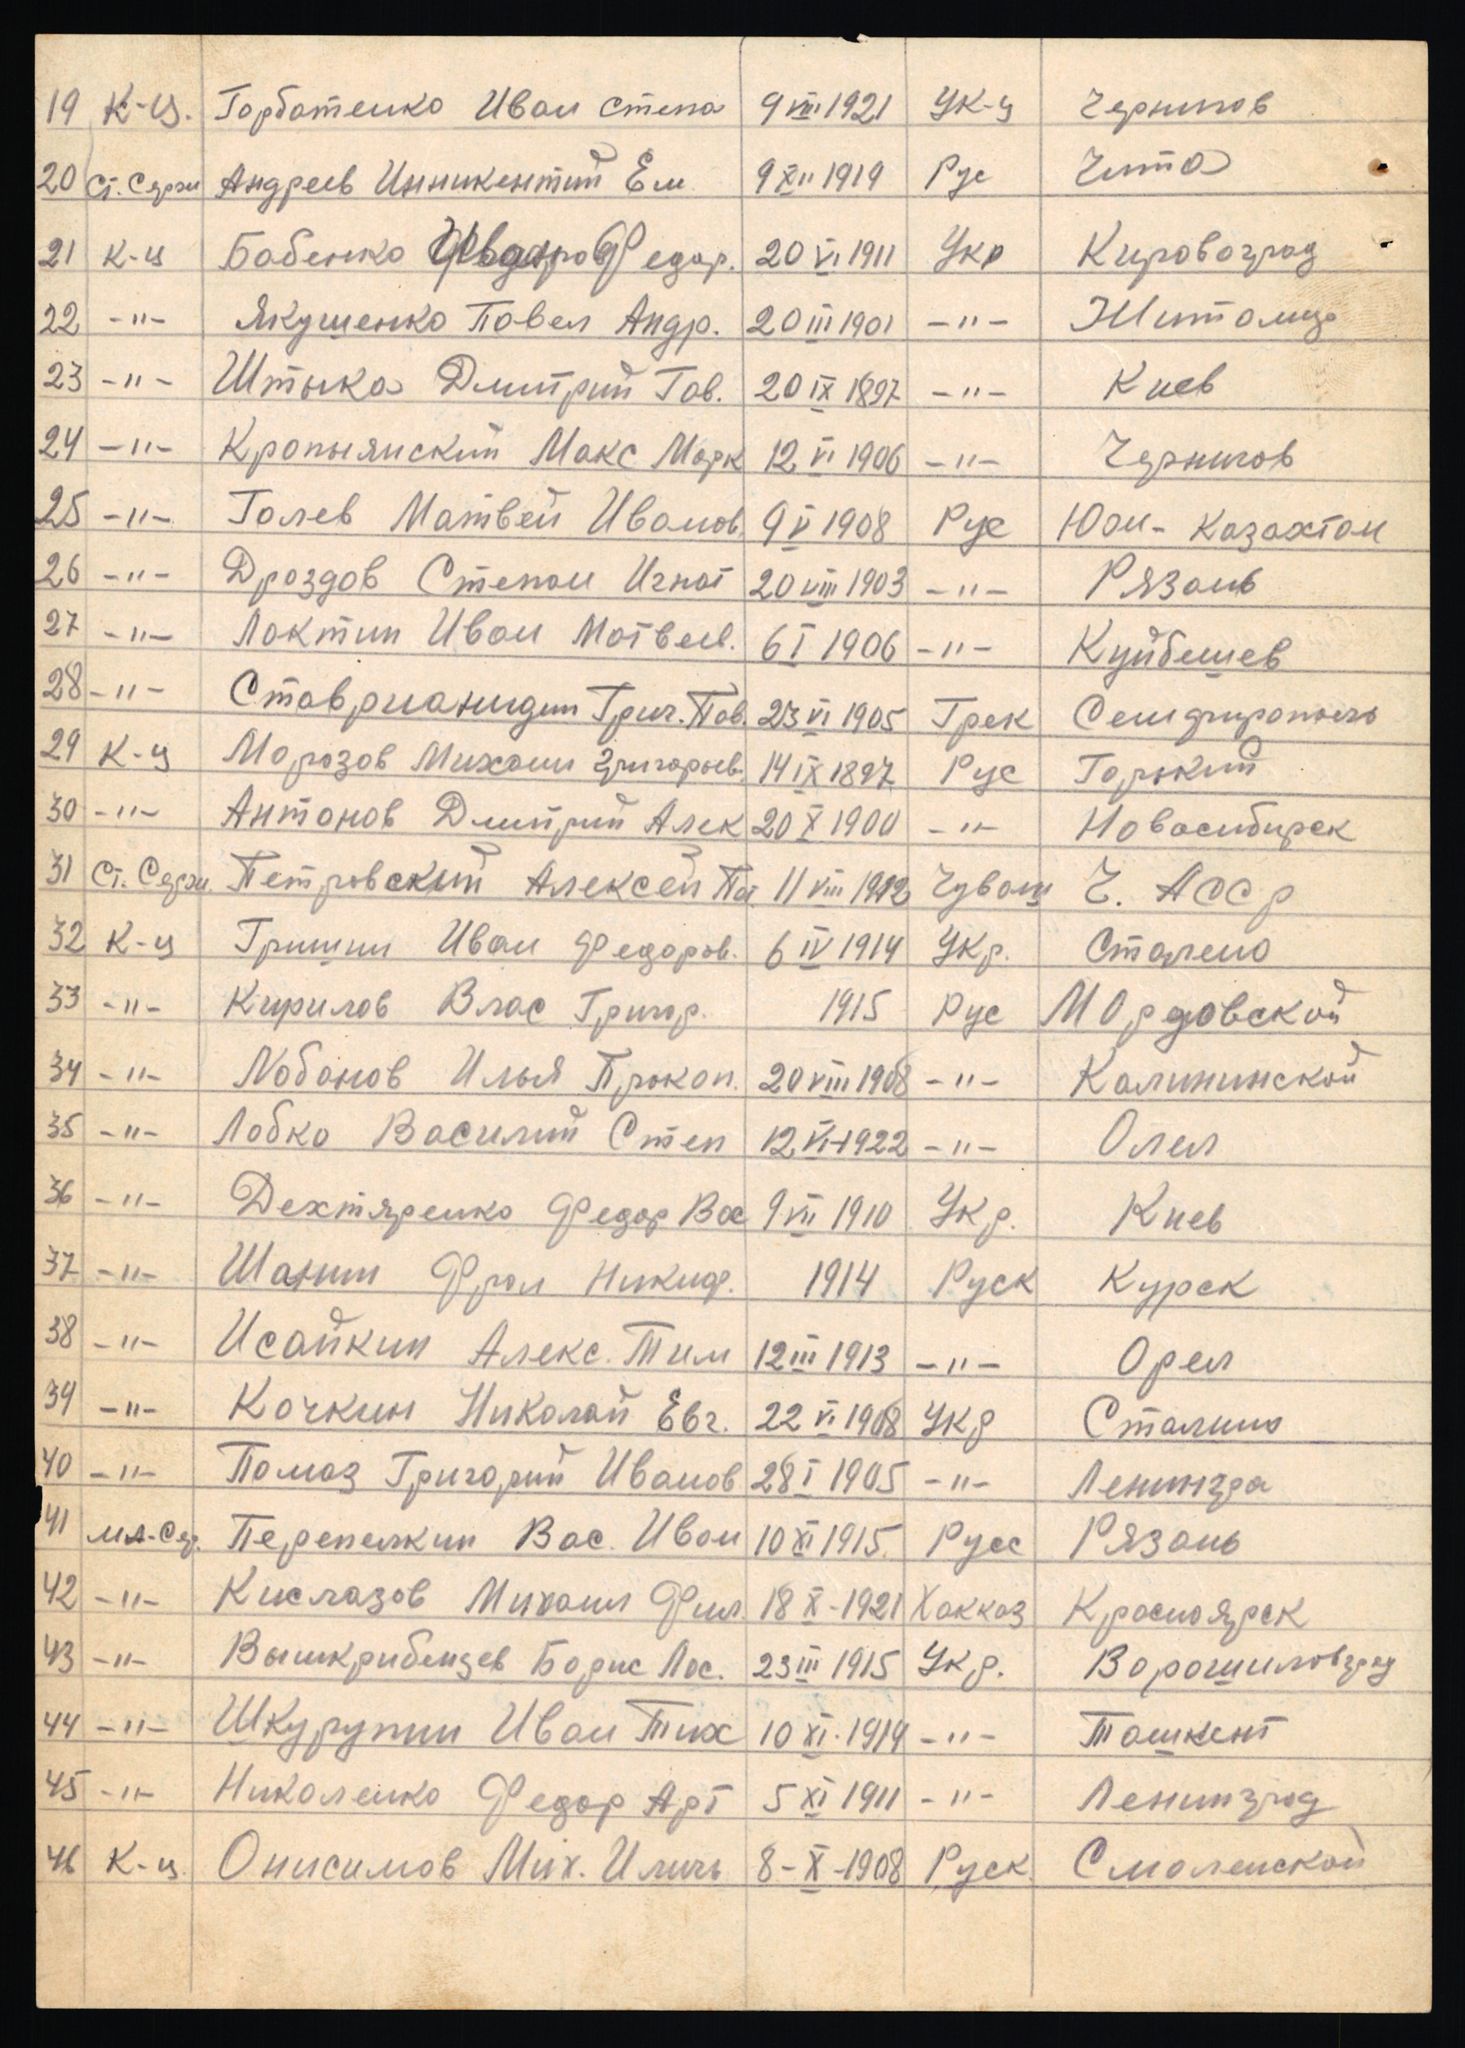 19 К-ц. Горбатенко Иван Степа 9 VIII 1921 Ук-ц Чернигов
20 Ст. Серж Андреев Инникентий Ем. 9 XII 1919 Рус Чита
21 К-ц Бабенко Федор. 20 VI 1911 Укр Кировоград
22 -"- Якушенко Павел Андр. 20 III 1901 -"- Житомир
23 -"- Штыка Дмитрий Гав. 20 IX 1897 -"- Киев
24 -"- Кропынянский Макс Марк 12 VI 1906 -"- Чернигов
25 -"- Галев Матвей Иванов. 9 V 1908 Рус Юан- Казахтан
26 -"- Дроздов Степан Игнат 20 VIII 1903 -"- Рязань
27 -"- Лактин Иван Матвеев. 6 I 1906 -"- Куйбешев
28 -"- Ставрианидин Григ. Пав. 23 VI 1905 Грек Семфирополь
29 К-ц Морозов Михаил Григорьев. 14 IX 1897 Рус Горький
30 -"- Антонов Дмитрий Алек 20 X 1900 -"- Новосибирск
31 Ст. Серж. Петровский Алексей Па 11 VIII 1912 Чуваш Ч. АССР
32 К-ц Гришин Иван Федоров. 6 IV 1914 Укр. Сталено
33 -"- Кирилов Влас Григор. 1915 Рус Мордовской
34 -"- Лобанов Илья Прокоп. 20 VIII 1908 -"- Калининской
35 -"- Лобко Василий Степ 12 VI-1922 -"- Олел
36 -"- Дехтяренко Федор Вас 9 VII 1910 Укр. Киев
37 -"- Шанин Фрол Никиф. 1914 Руск Курск
38 -"- Исайкин Алекс. Тим 12 III 1913 -"- Орел
39 -"- Кочкин Николай Евг. 22 VI 1908 Укр Сталино
40 -"- Помаз Григорий Иванов 28 I 1905 -"- Ленингра
41 мл-Сер. Перепелкин Вас. Иван 10 XI 1915. Русс Рязань
42 -"- Кислазов Михаил Фил. 18 X-1921 Хакказ Красноярск
43 -"- Вышкрибенцев Борис Лос. 23 III 1915 Укр. Ворошиловград
44 -"- Шкурупин Иван Тих 10 XI. 1919 -"- Ташкент
45 -"- Николенко Федор Арт 5 XI 1911 -"- Ленинград
46 К-ц. Онисимов Мих. Иличь 8-X-1908 Руск. Смоленской